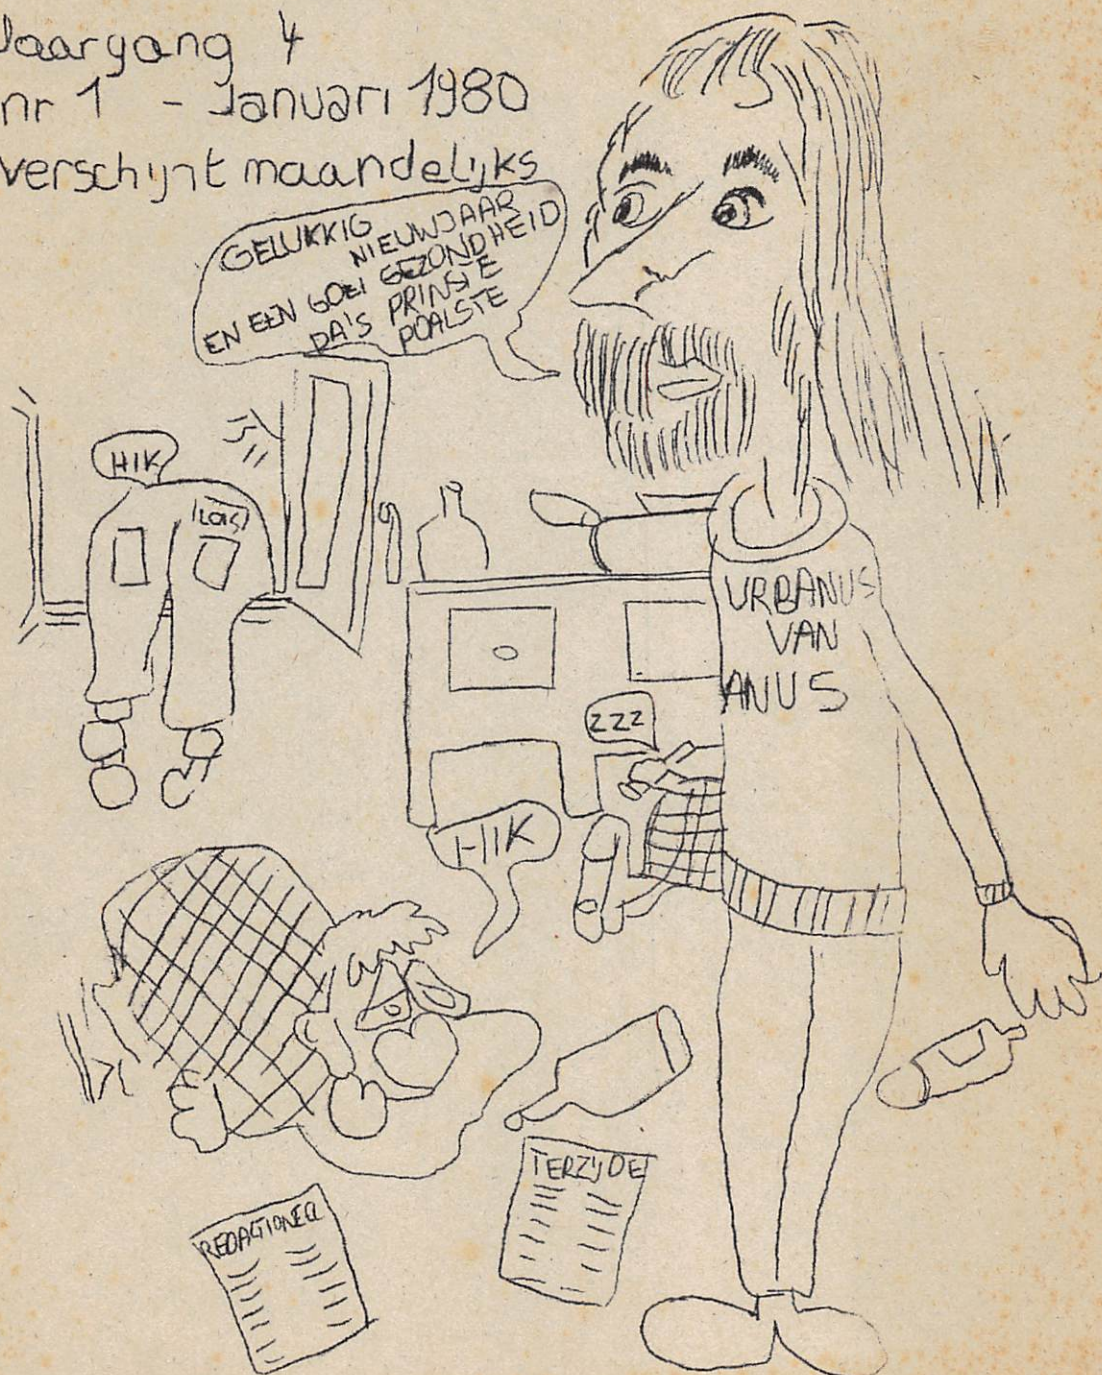 Jaargang 4
nr 1 - Januari 1980
verschijnt maandelijks
GELUKKIG
NIEUWJAAR
EN EEN GOEI GEZONDHEID
DA'S PRINSIE
POALSTE
HIK
LOIS
URBANUS
VAN
ANUS
ZZZ
HIK
TERZIJDE
REDACTIONEEL